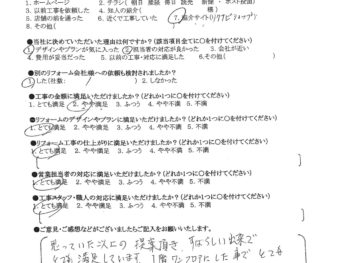 1. ホームページ 2. チラシ( 朝日 産経 毎日 読売 新聞 ・ ポスト投函)
3. 以前工事を依頼した 4. 知人の紹介( 様)
5. 店舗の前を通った 6. 近くで工事していた 7. 紹介サイト(リノケアビフォーアフター)
8. その他( )
●当社に決めていただいた理由は何ですか?(該当項目全てに〇を付けてください)
1. デザインやプランが気に入った 2. 担当者の対応が良かった 3. 会社が近い
4. 費用が妥当だった 5. 以前の工事・対応に満足 6. その他( )
●別のリフォーム会社様への依頼も検討されましたか?
1. した(社数: ) 2. しなかった
●工事の金額に満足いただけましたか?(どれか1つに〇を付けてください)
1. とても満足 2. やや満足 3. ふつう 4. やや不満 5. 不満
●リフォームのデザインやプランに満足いただけましたか?(どれか1つに〇を付けてください)
1. とても満足 2. やや満足 3. ふつう 4. やや不満 5. 不満
●リフォーム工事の仕上がりに満足いただけましたか?(どれか1つに〇を付けてください)
1. とても満足 2. やや満足 3. ふつう 4. やや不満 5. 不満
●営業担当者の対応に満足いただけましたか?(どれか1つに〇を付けてください)
1. とても満足 2. やや満足 3. ふつう 4. やや不満 5. 不満
●工事スタッフ・職人の対応に満足いただけましたか?(どれか1つに〇を付けてください)
1. とても満足 2. やや満足 3. ふつう 4. やや不満 5. 不満
●ご意見・ご感想などがございましたらご記入をお願いいたします。
思っていた以上の提案頂き、すばらしい出来で
とても満足しています 1階ワンフロアにした事で とても